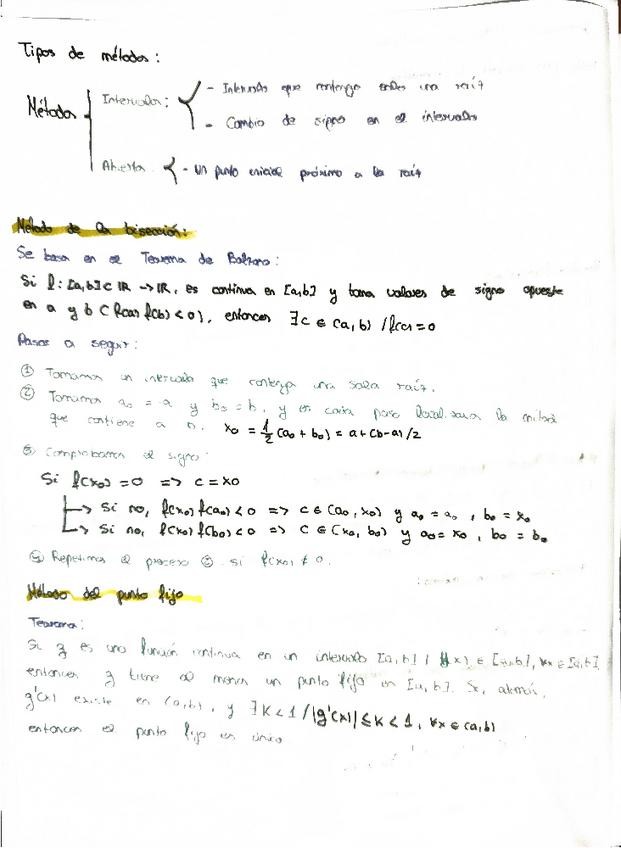 Tipos de métodos:
Métodos
Intervalos: - Intervalo que contenga una raíz
- Cambio de signo en el intervalo
Abierto - un punto inicial próximo a la raíz
Método de la bisección:
Se basa en el Teorema de Bolzano:
Si f: [a,b] ⊂ IR → IR, es continua en [a,b] y toma valores de signo opuesto
en a y b (f(a) f(b) < 0), entonces ∃c ∈ (a,b) / f(c) = 0
Pasos a seguir:
① Tomamos un intervalo que contenga una sola raíz.
② Tomamos a₀ = a y b₀ = b, y en cada paso la mitad
que contiene a x₀ = 1/2 (a₀ + b₀) = a + (b-a)/2
③ Comprobamos el signo:
Si f(x₀) = 0 => c = x0
Si no, f(x₀) f(a₀) < 0 => c ∈ (a₀, x₀) y a₀ = a₀, b₀ = x₀
Si no, f(x₀) f(b₀) < 0 => c ∈ (x₀, b₀) y a₀ = x₀, b₀ = b₀
④ Repetimos el proceso ② si f(x₀) ≠ 0.
Método del punto fijo
Teorema:
Si g es una función continua en un intervalo [a,b] / g(x) ∈ [a,b], ∀x ∈ [a,b],
entonces g tiene al menos un punto fijo en [a,b]. Si, además,
g'(x) existe en (a,b), y ∃ K < 1 / |g'(x)| ≤ K < 1, ∀x ∈ (a,b)
entonces el punto fijo es único